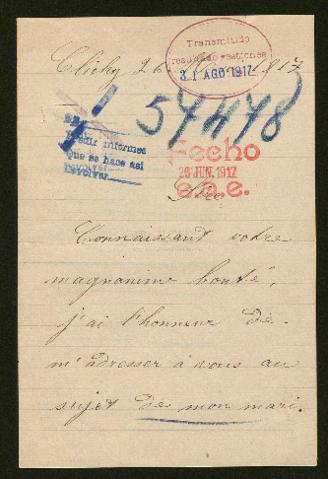 Clichy 26 1917
Transmitido
31 AGO 1917
57478
Pedir informes
Que se hace asi
Fecho
26 JUN. 1917
Sire
Connaissant votre
magnanime bonté,
j'ai l'honneur de
m'adresser à vous au
sujet de mon mari.